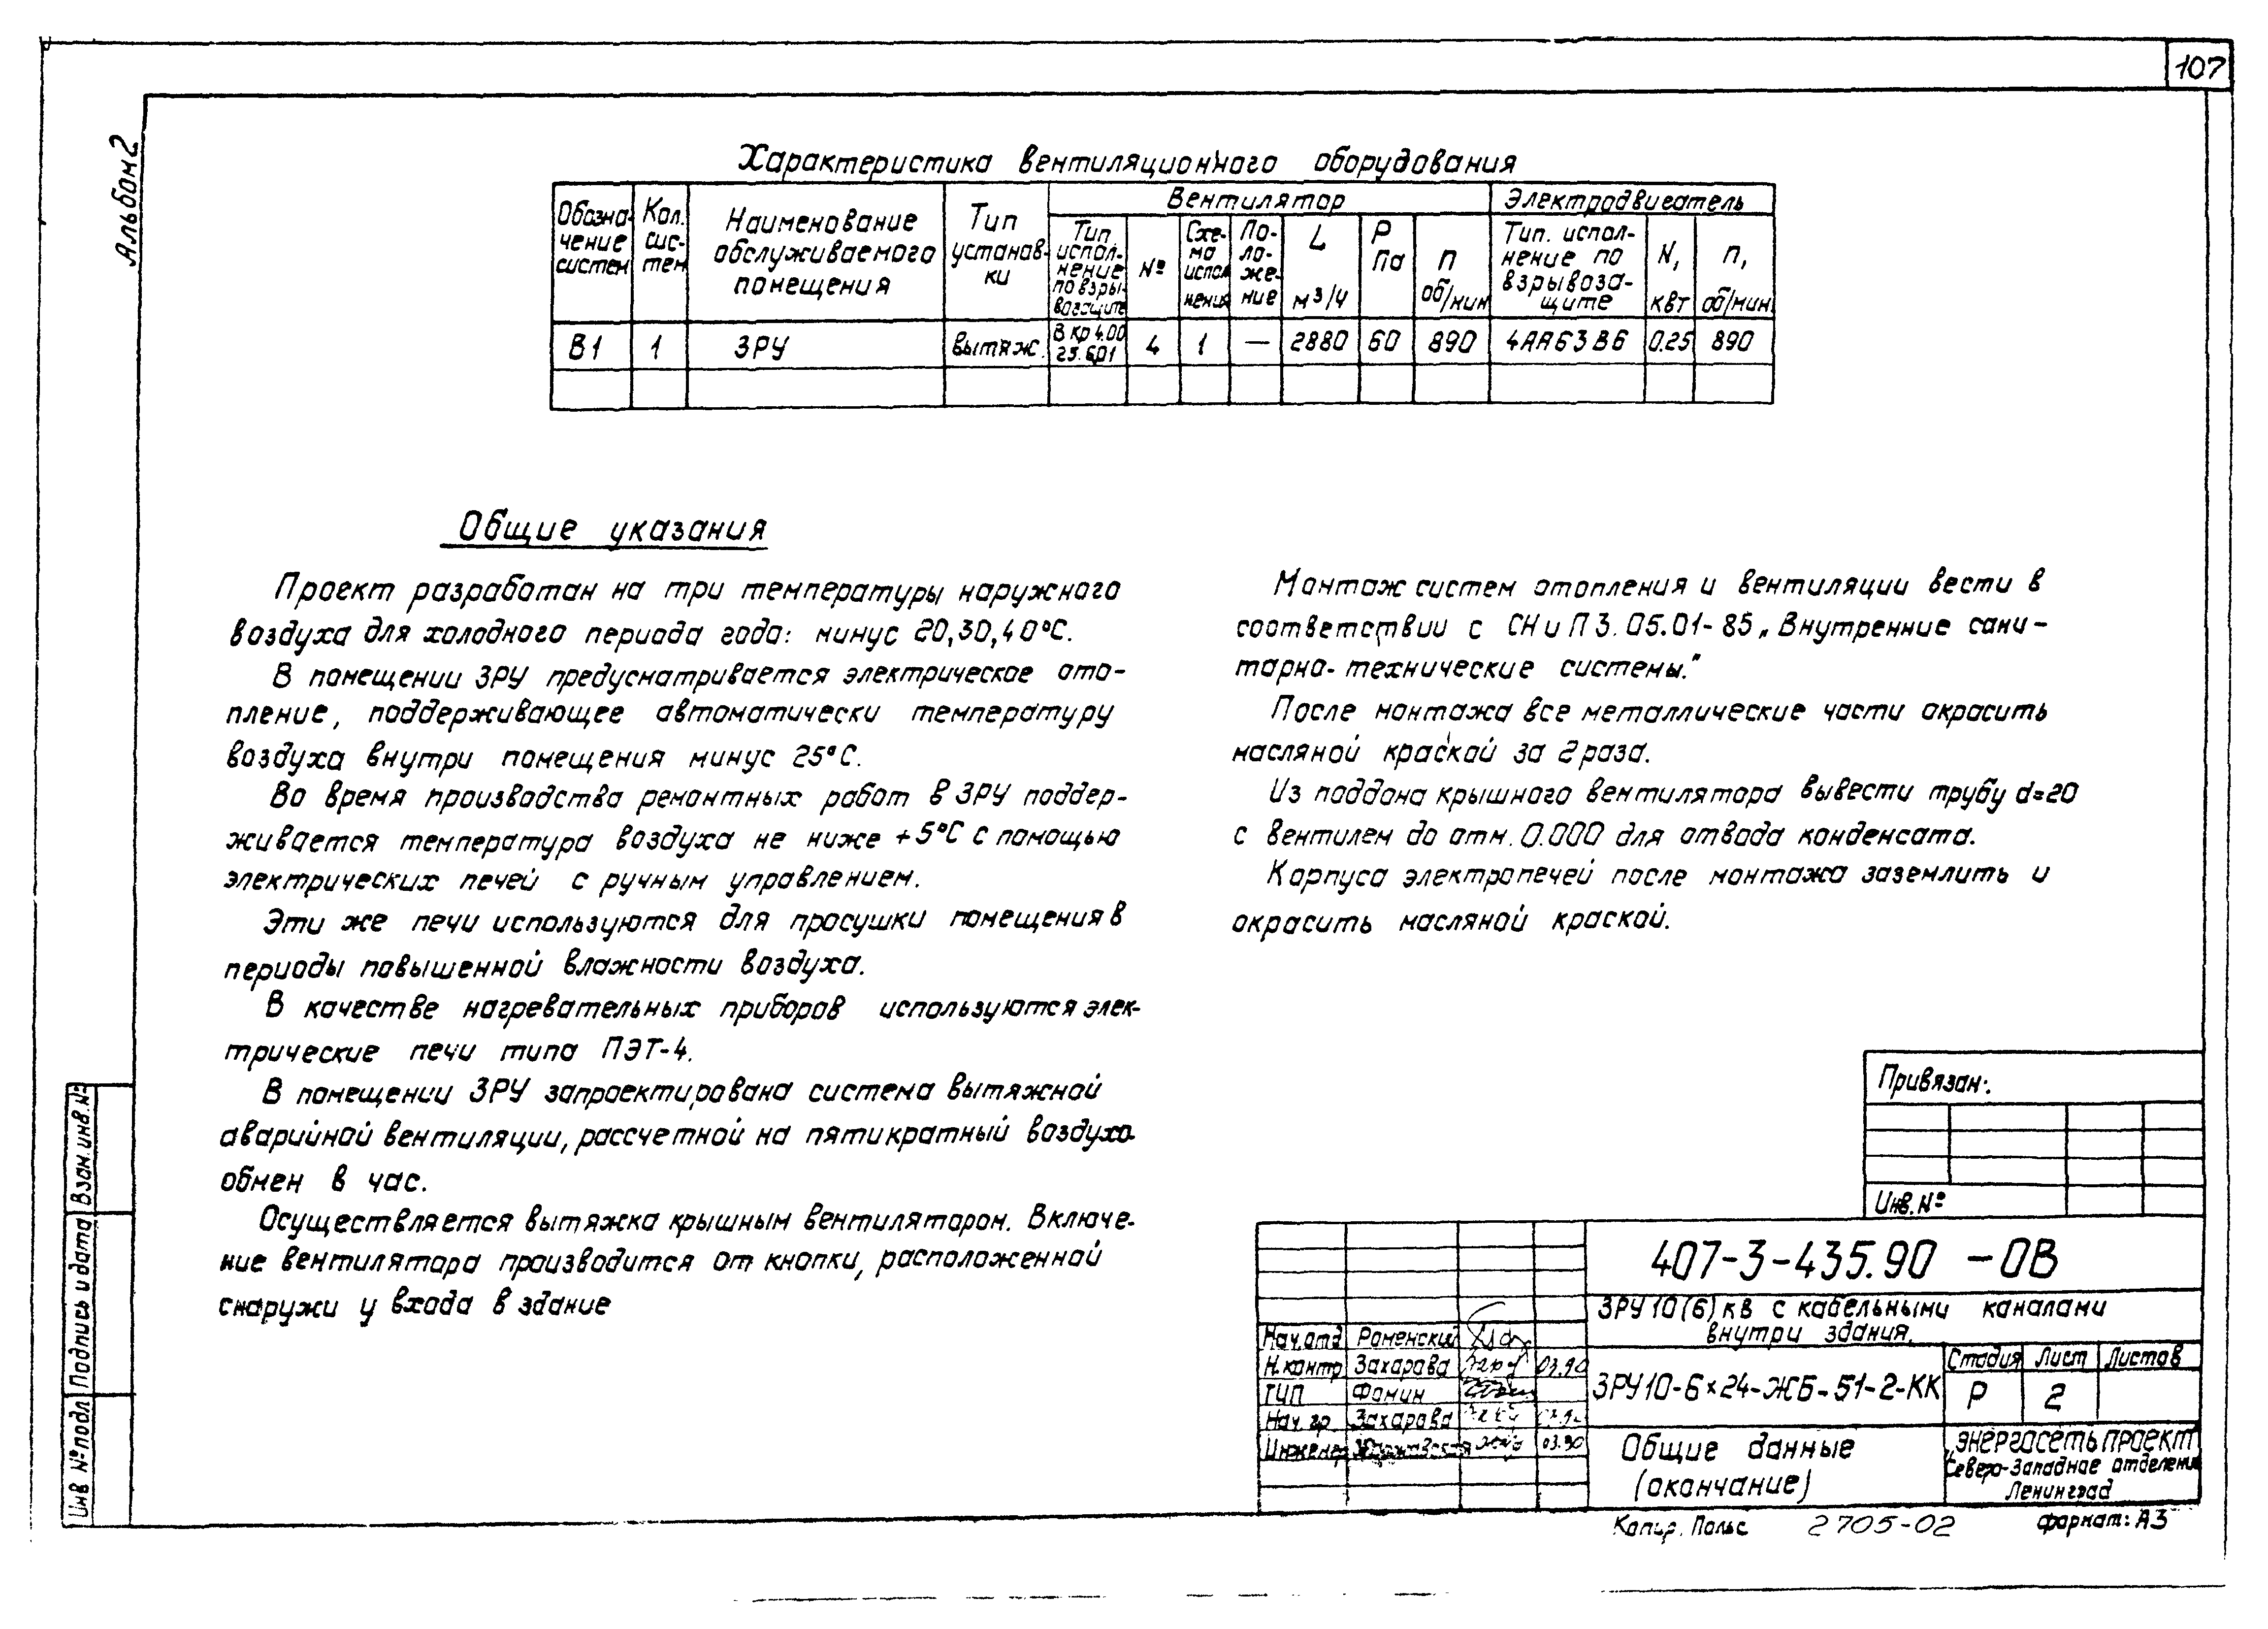 107
Альбом 2
Характеристика вентиляционного оборудования
Обозна-
чение
систем
Кол.
сис-
тем
Наименование
обслуживаемого
помещения
Тип
установ-
ки
Вентилятор
Тип,
испол-
нение
по взры-
возащите
№
Схе-
ма
испол
нения
По-
ло-
же-
ние
L
м³/ч
Р
Па
п
об/мин
Электродвигатель
Тип. испол-
нение по
взрывоза-
щите
N,
квт
п,
об/мин.
В1 1 ЗРУ вытяж. В Кр 4.00 4 1 — 2880 60 890 4АА63В6 0.25 890
25.6.01
Общие указания
Проект разработан на три температуры наружного
воздуха для холодного периода года: минус 20,30,40°С.
В помещении ЗРУ предусматривается электрическое ото-
пление, поддерживающее автоматически температуру
воздуха внутри помещения минус 25°С.
Во время производства ремонтных работ в ЗРУ поддер-
живается температура воздуха не ниже +5°С с помощью
электрических печей с ручным управлением.
Эти же печи используются для просушки помещения в
периоды повышенной влажности воздуха.
В качестве нагревательных приборов используются элек-
трические печи типа ПЭТ-4.
В помещении ЗРУ запроектирована система вытяжной
аварийной вентиляции, рассчетной на пятикратный воздухо-
обмен в час.
Осуществляется вытяжка крышным вентилятором. Включе-
ние вентилятора производится от кнопки, расположенной
снаружи у входа в здание
Монтаж систем отопления и вентиляции вести в
соответствии с СНиП 3.05.01-85 „Внутренние сани-
тарно-технические системы."
После монтажа все металлические части окрасить
масляной краской за 2 раза.
Из поддона крышного вентилятора вывести трубу d=20
с вентилем до отм. 0.000 для отвода конденсата.
Корпуса электропечей после монтажа заземлить и
окрасить масляной краской.
Привязан:.
Инв. №
407-3-435.90 -ОВ
ЗРУ 10(6) кв с кабельными каналами
внутри здания.
Нач.отд Роменский
Н.контр Захарова 03.90
ГИП Фомин
Нач. гр. Захарова
Инженер 03.90
ЗРУ10-6х24-ЖБ-51-2-КК
Стадия Лист Листов
Р 2
Общие данные
(окончание)
ЭНЕРГОСЕТЬПРОЕКТ
Северо-Западное отделение
Ленинград
Копир. Польс 2705-02 формат: А3
Взам.инв.№
Подпись и дата
Инв №подл